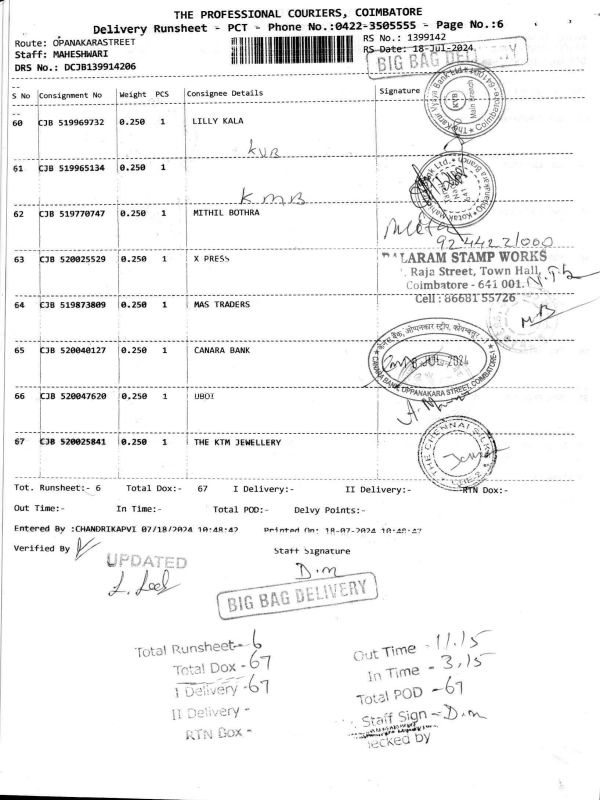 THE PROFESSIONAL COURIERS, COIMBATORE
Delivery Runsheet - PCT - Phone No.:0422-3505555 - Page No.:6
Route: OPANAKARASTREET
RS No.: 1399142
Staff: MAHESHWARI
RS Date: 18-Jul-2024
DRS No.: DCJB139914206
BIG BAG DELIVERY
S No Consignment No Weight PCS Consignee Details Signature
60 CJB 519969732 0.250 1 LILLY KALA
KVB
61 CJB 519965134 0.250 1
KMB
62 CJB 519770747 0.250 1 MITHIL BOTHRA
9244221000
63 CJB 520025529 0.250 1 X PRESS
LARAM STAMP WORKS
Raja Street, Town Hall,
Coimbatore - 641 001.
Cell : 86681 55726
64 CJB 519873809 0.250 1 MAS TRADERS
65 CJB 520040127 0.250 1 CANARA BANK
JUL 2024
CANARA BANK, UPPANAKARA STREET, COIMBATORE-1
66 CJB 520047620 0.250 1 UBOI
67 CJB 520025841 0.250 1 THE KTM JEWELLERY
THE CHENNAI SILKS
CBE-2
Tot. Runsheet:- 6 Total Dox:- 67 I Delivery:- II Delivery:- RTN Dox:-
Out Time:- In Time:- Total POD:- Delvy Points:-
Entered By :CHANDRIKAPVI 07/18/2024 10:48:42 Printed On: 18-07-2024 10:48:42
Verified By
Staff Signature
UPDATED
D.m
BIG BAG DELIVERY
Total Runsheet- 6
Total Dox - 67
I Delivery - 67
II Delivery -
RTN Dox -
Out Time - 11.15
In Time - 3.15
Total POD - 67
Staff Sign - D.m
ecked by